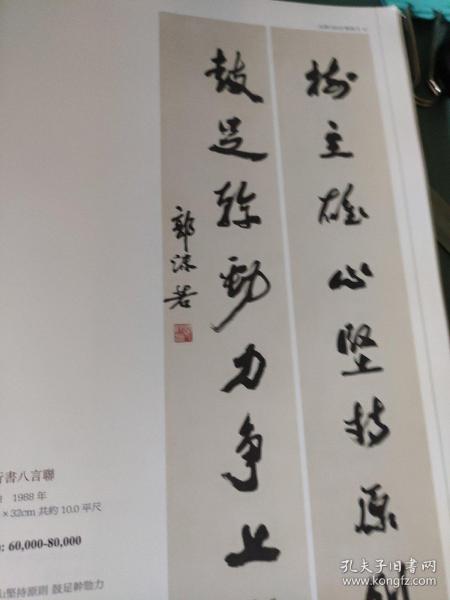 樹立雄心堅持原則
鼓足幹勁力爭上
郭沫若
行書八言聯
1988 年
× 32cm 共約 10.0 平尺
: 60,000-80,000
堅持原則 鼓足幹勁力
孔夫子旧书网